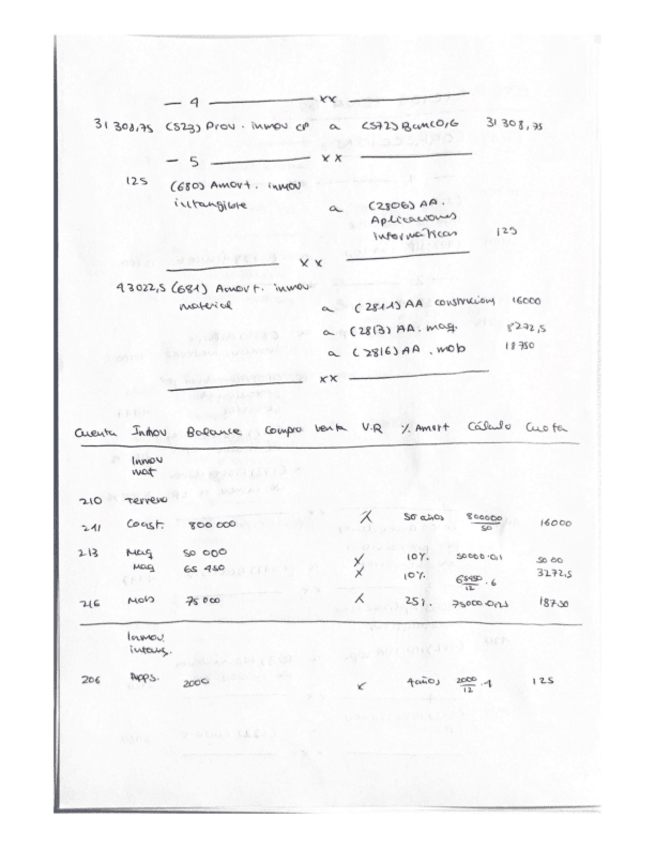 — 4 ——— xx ———
31 308,75 (523) Prov. inmov CP a (572) Banco, G 31 308,75
— 5 ——— xx ———
125 (680) Amort. inmov
intangible a (2806) AA.
Aplicaciones
informáticas 125
——— xx ———
43022,5 (681) Amort. inmov
material a (2811) AA construcciony 16000
a (2813) AA. maq. 8272,5
a (2816) AA. mob 18750
——— xx ———
Cuenta Inmov Balance Compra venta V.R % Amort Cálculo Cuota
Inmov
mat
210 Terreno
211 Const. 800 000 X 50 años 800000/50 16000
213 Maq 50 000 X 10% 50000·0,1 5000
Maq 65 450 X 10% /12 · 6 3272,5
216 Mob 75 000 X 25%. 75000·0,25 18750
Inmov
intang.
206 Apps. 2000 x 4 años 2000/12 ·1 125